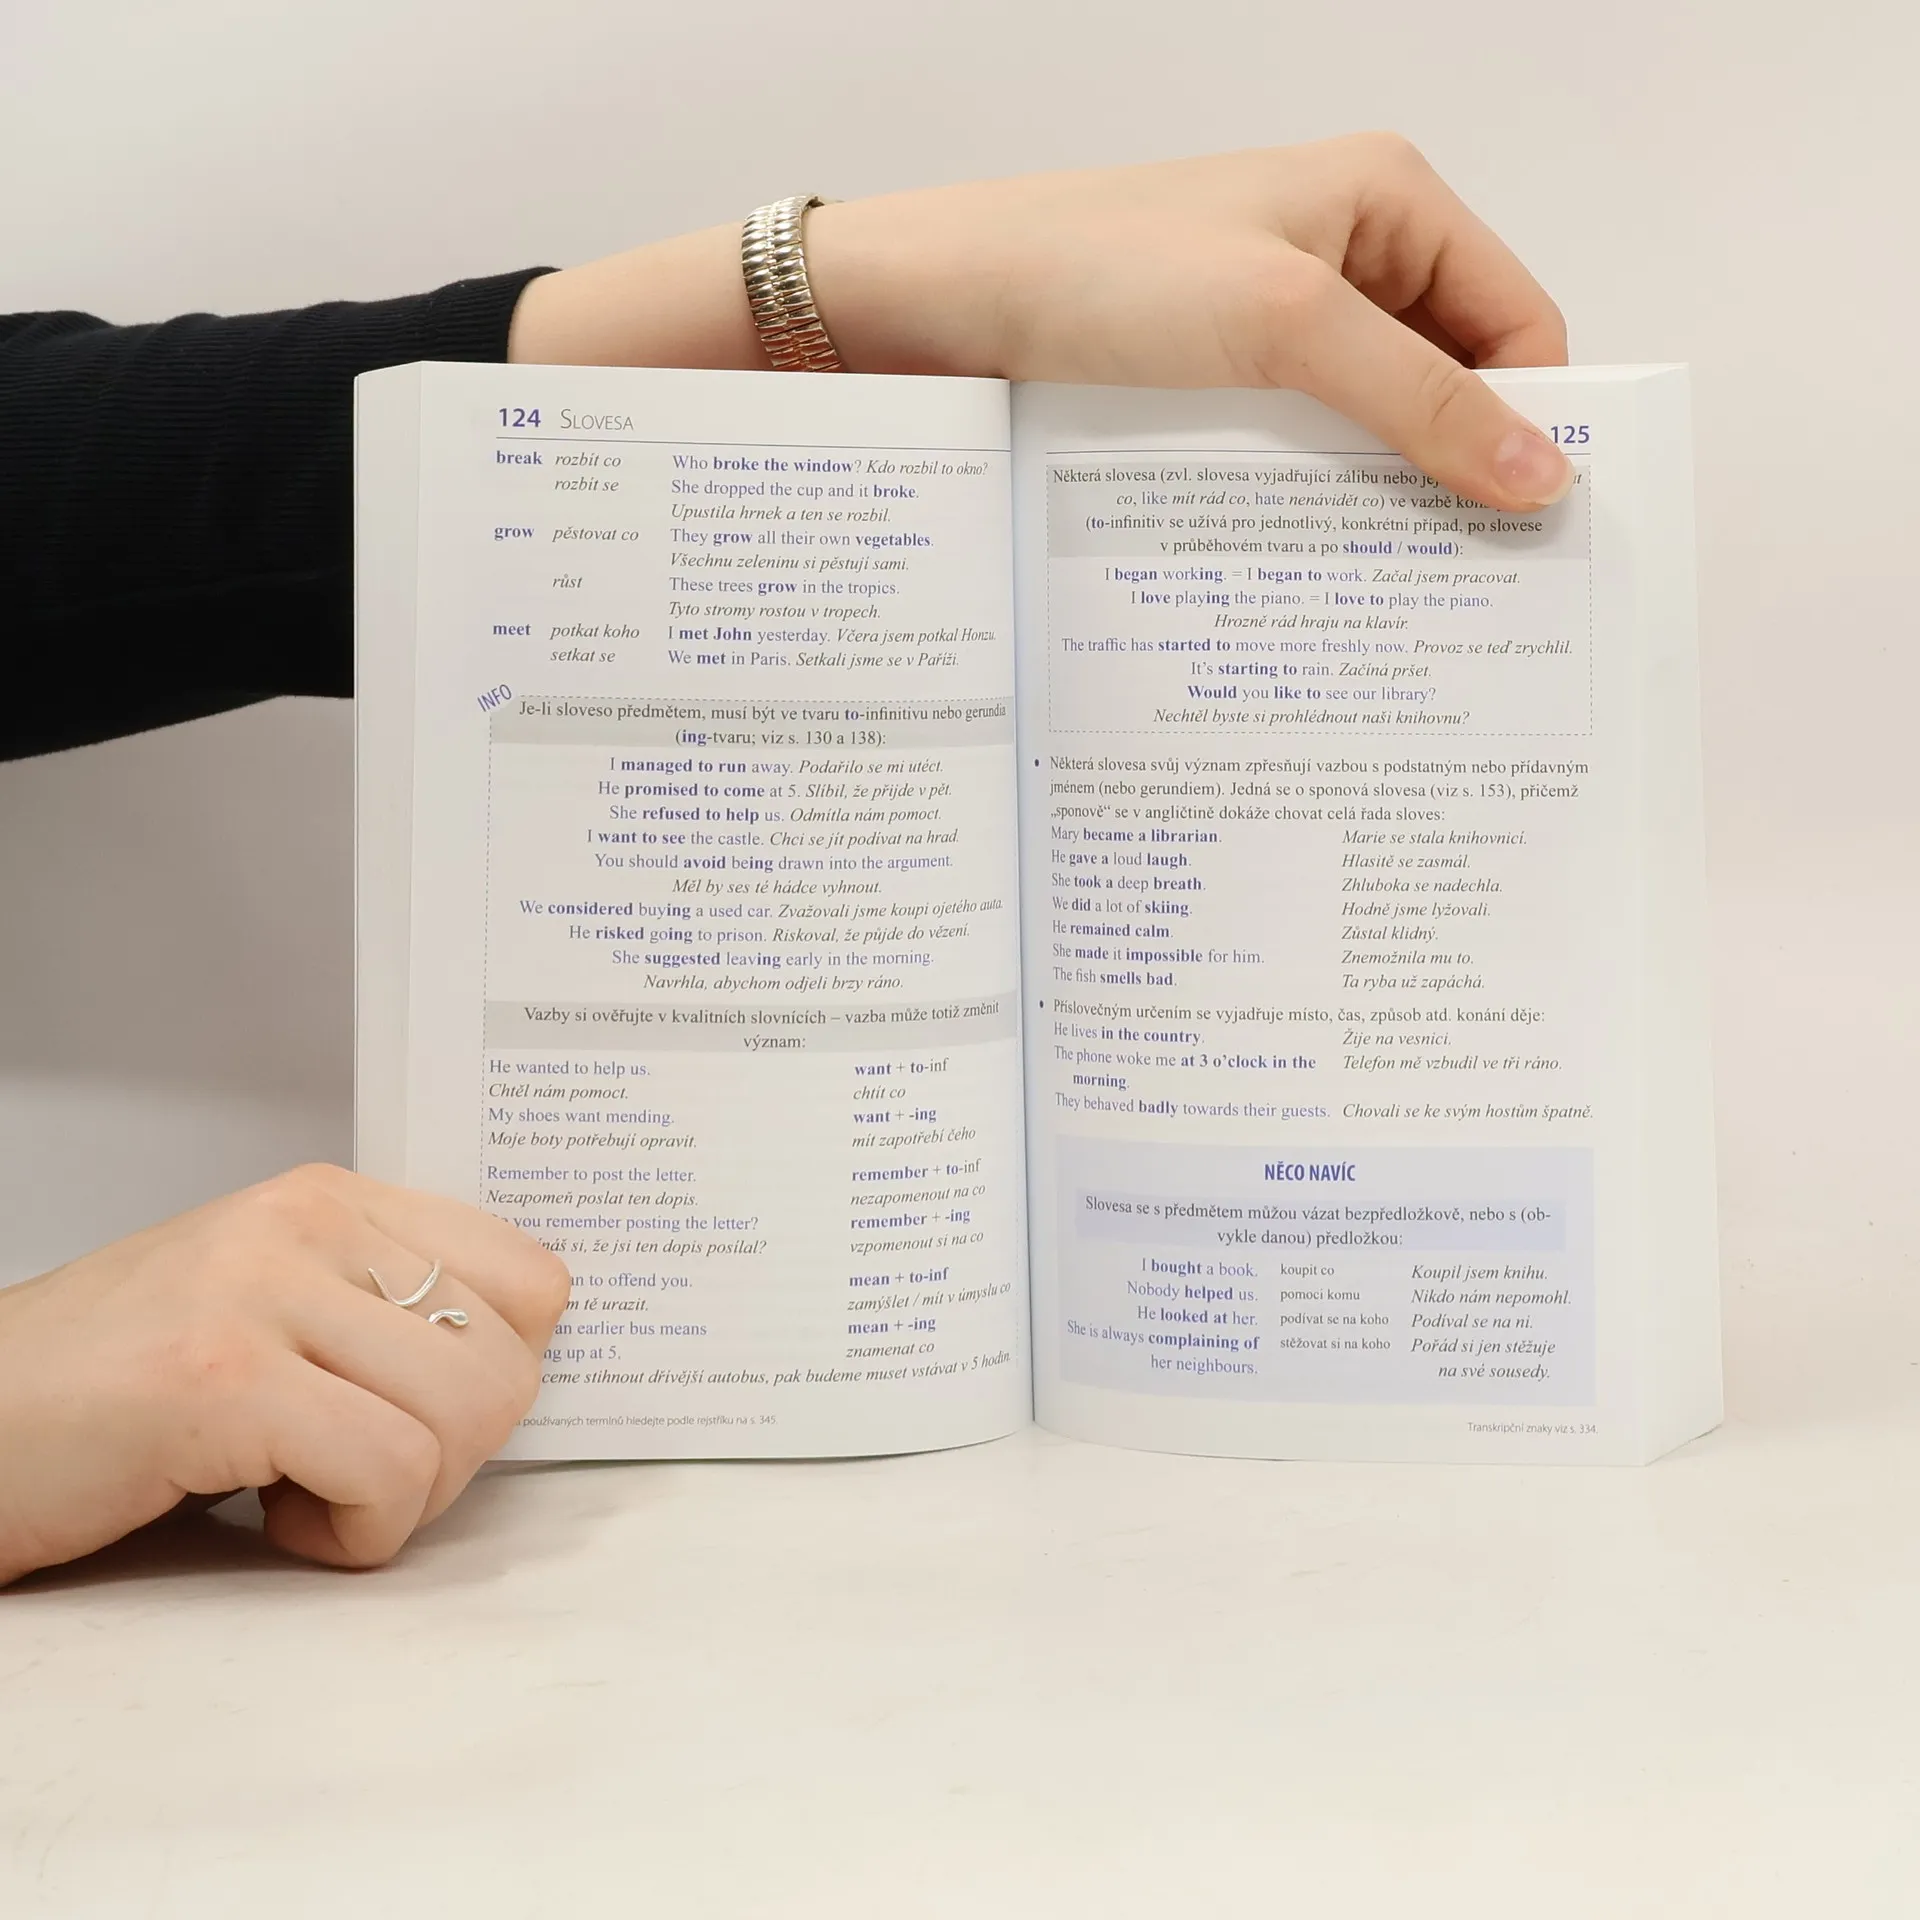 124 SLOVESA
break rozbít co Who broke the window? Kdo rozbil to okno?
rozbít se She dropped the cup and it broke.
Upustila hrnek a ten se rozbil.
grow pěstovat co They grow all their own vegetables.
Všechnu zeleninu si pěstují sami.
růst These trees grow in the tropics.
Tyto stromy rostou v tropech.
meet potkat koho I met John yesterday. Včera jsem potkal Honzu.
setkat se We met in Paris. Setkali jsme se v Paříži.
INFO
Je-li sloveso předmětem, musí být ve tvaru to-infinitivu nebo gerundia
(ing-tvaru; viz s. 130 a 138):
I managed to run away. Podařilo se mi utéct.
He promised to come at 5. Slíbil, že přijde v pět.
She refused to help us. Odmítla nám pomoct.
I want to see the castle. Chci se jít podívat na hrad.
You should avoid being drawn into the argument.
Měl by ses té hádce vyhnout.
We considered buying a used car. Zvažovali jsme koupi ojetého auta.
He risked going to prison. Riskoval, že půjde do vězení.
She suggested leaving early in the morning.
Navrhla, abychom odjeli brzy ráno.
Vazby si ověřujte v kvalitních slovnících – vazba může totiž změnit
význam:
He wanted to help us. want + to-inf
Chtěl nám pomoct. chtít co
My shoes want mending. want + -ing
Moje boty potřebují opravit. mít zapotřebí čeho
Remember to post the letter. remember + to-inf
Nezapomeň poslat ten dopis. nezapomenout na co
you remember posting the letter? remember + -ing
si, že jsi ten dopis posílal? vzpomenout si na co
to offend you. mean + to-inf
tě urazit. zamýšlet / mít v úmyslu co
an earlier bus means mean + -ing
up at 5. znamenat co
stihnout dřívější autobus, pak budeme muset vstávat v 5 hodin.
používaných termínů hledejte podle rejstříku na s. 345.
125
Některá slovesa (zvl. slovesa vyjadřující zálibu nebo
co, like mít rád co, hate nenávidět co) ve vazbě
(to-infinitiv se užívá pro jednotlivý, konkrétní případ, po slovese
v průběhovém tvaru a po should / would):
I began working. = I began to work. Začal jsem pracovat.
I love playing the piano. = I love to play the piano.
Hrozně rád hraju na klavír.
The traffic has started to move more freshly now. Provoz se teď zrychlil.
It's starting to rain. Začíná pršet.
Would you like to see our library?
Nechtěl byste si prohlédnout naši knihovnu?
• Některá slovesa svůj význam zpřesňují vazbou s podstatným nebo přídavným
jménem (nebo gerundiem). Jedná se o sponová slovesa (viz s. 153), přičemž
„sponově“ se v angličtině dokáže chovat celá řada sloves:
Mary became a librarian. Marie se stala knihovnicí.
He gave a loud laugh. Hlasitě se zasmál.
She took a deep breath. Zhluboka se nadechla.
We did a lot of skiing. Hodně jsme lyžovali.
He remained calm. Zůstal klidný.
She made it impossible for him. Znemožnila mu to.
The fish smells bad. Ta ryba už zapáchá.
• Příslovečným určením se vyjadřuje místo, čas, způsob atd. konání děje:
He lives in the country. Žije na vesnici.
The phone woke me at 3 o'clock in the Telefon mě vzbudil ve tři ráno.
morning.
They behaved badly towards their guests. Chovali se ke svým hostům špatně.
NĚCO NAVÍC
Slovesa se s předmětem můžou vázat bezpředložkově, nebo s (ob-
vykle danou) předložkou:
I bought a book. koupit co Koupil jsem knihu.
Nobody helped us. pomoci komu Nikdo nám nepomohl.
He looked at her. podívat se na koho Podíval se na ni.
She is always complaining of stěžovat si na koho Pořád si jen stěžuje
her neighbours. na své sousedy.
Transkripční znaky viz s. 334.